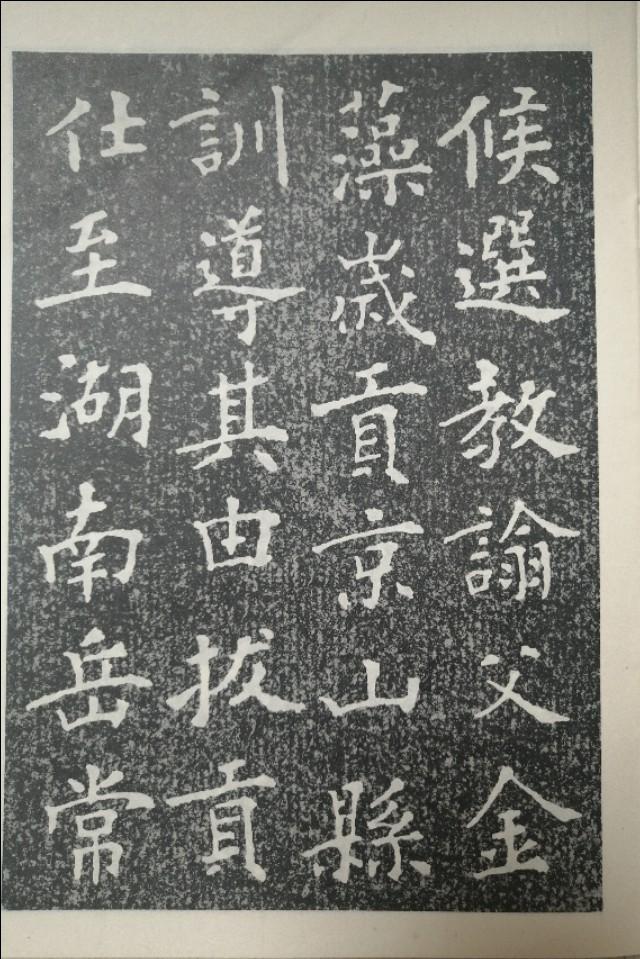 候選教諭父金
藻歲貢京山縣
訓導其由拔貢
仕至湖南岳常